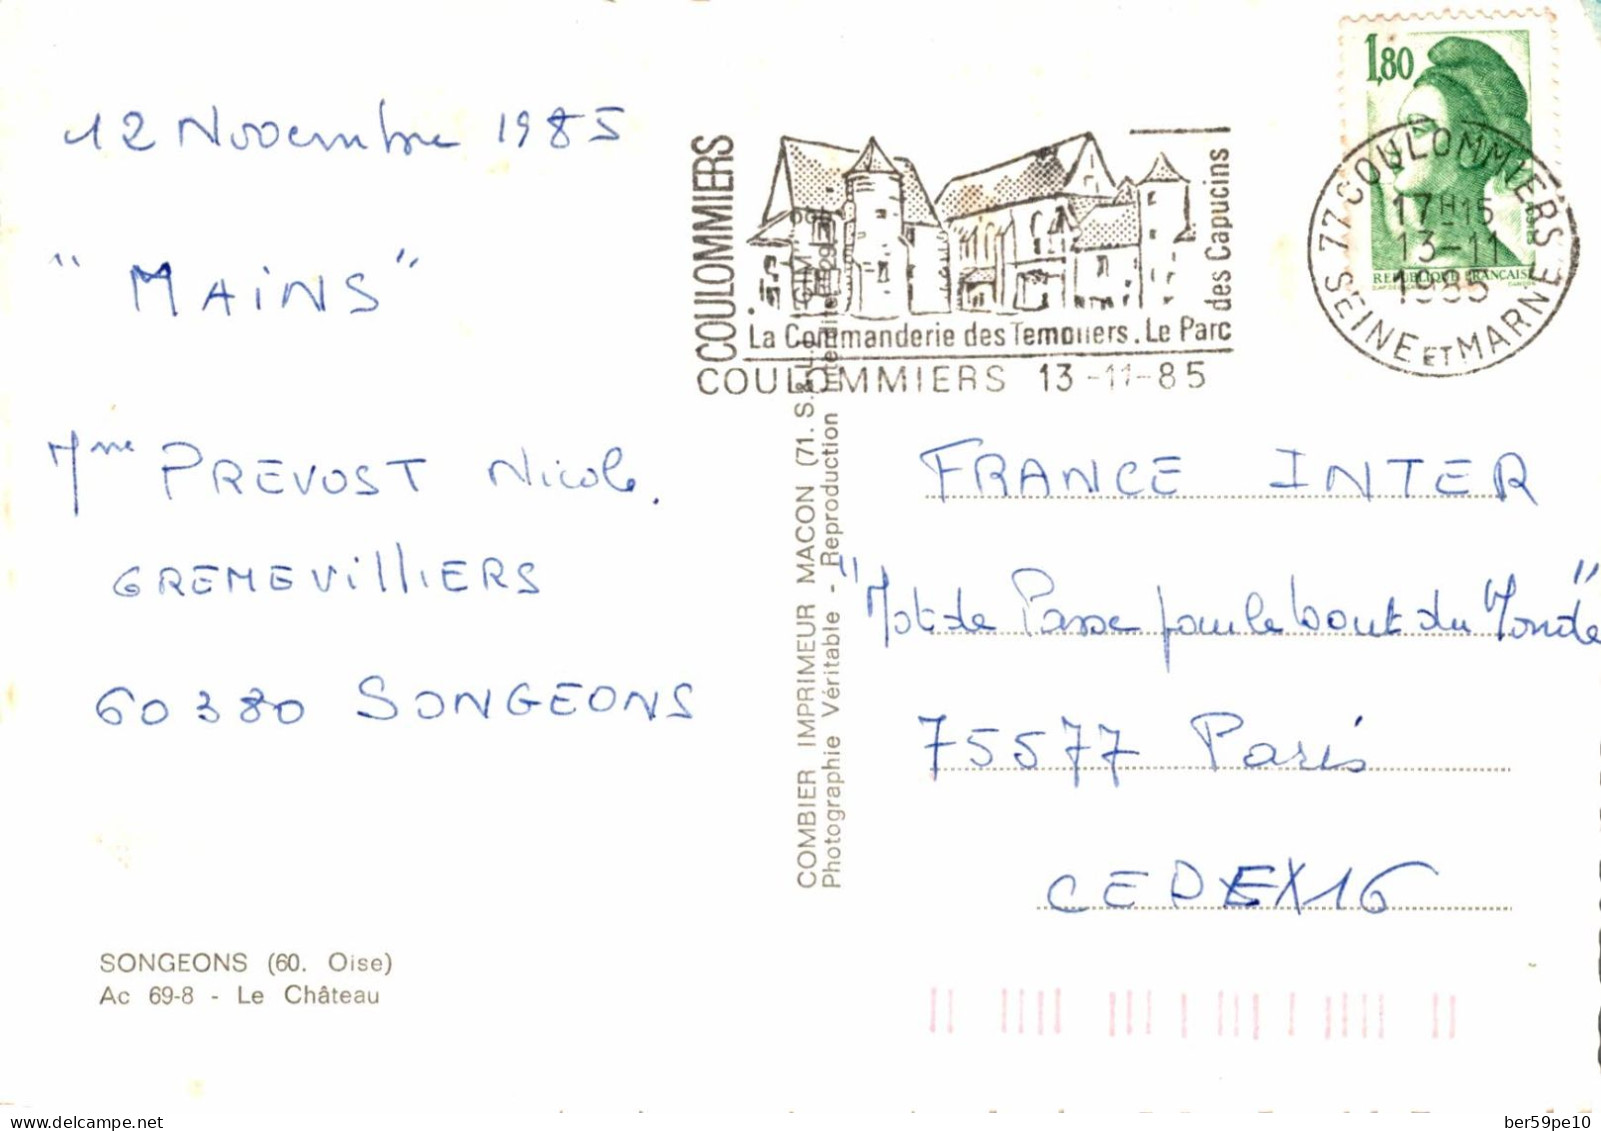 12 Novembre 1985
" MAINS "
Mme PREVOST Nicole.
GREMEVILLIERS
60380 SONGEONS
SONGEONS (60. Oise)
Ac 69-8 - Le Château
COMBIER IMPRIMEUR MACON (71. S.&L.) "CIM"
Photographie Véritable - Reproduction Interdite
COULOMMIERS
La Commanderie des Templiers. Le Parc
des Capucins
COULOMMIERS 13-11-85
1,80
REPUBLIQUE FRANÇAISE
77 COULOMMIERS
17H15
13-11
1985
SEINE ET MARNE
FRANCE INTER
"Mot de Passe pour le bout du Monde"
75577 Paris
CEDEX 16
delcampe.net
ber59pe10